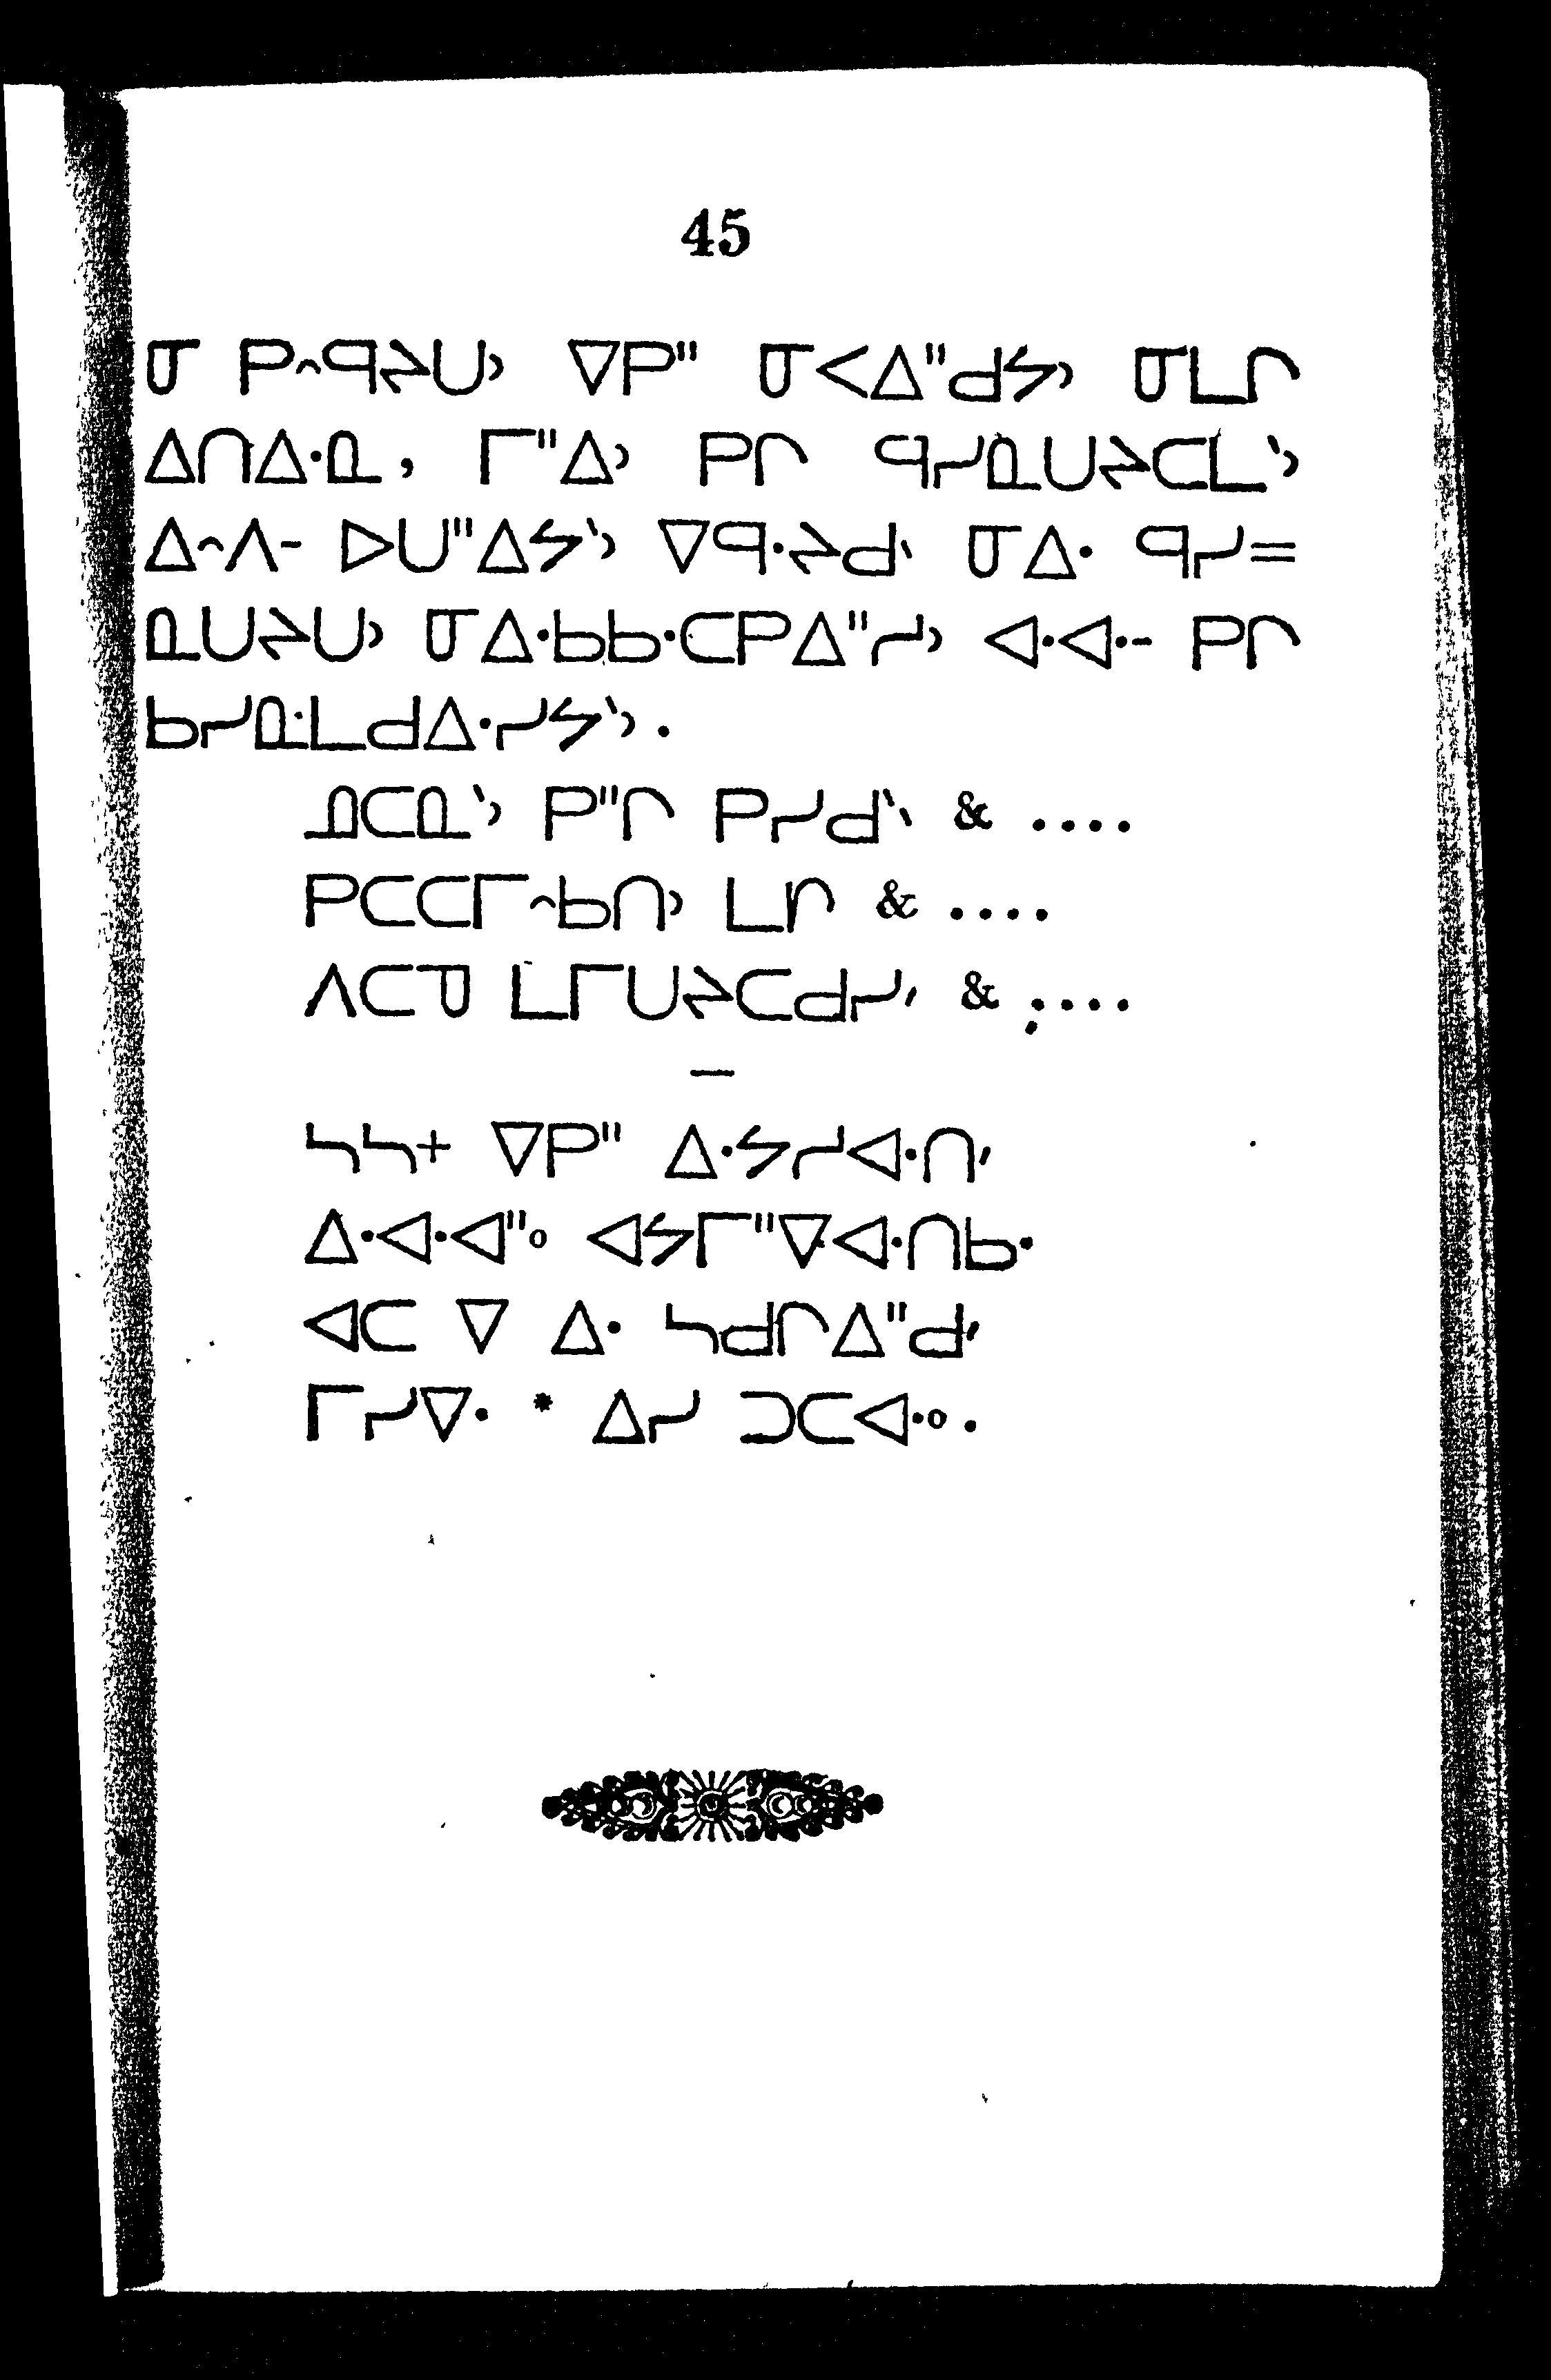 45
ᓂ ᑭᐢᑫᔨᑌᐣ ᐁᑭᐦ ᓂᐸᐃᐦᑯᔭᐣ ᓂᒪᒋ
ᐃᑎᐃᐧᓇ, ᒥᐦᐃᐣ ᑭᒋ ᑫᓯᓇᑌᔨᑕᒪᐠᐣ
ᐃᐢᐱᐨ ᐅᑌᐦᐃᔭᐠᐣ ᐁᑫᐧᔨᑯᐠ ᓂᐃᐧ ᑫᓯ=
ᓇᑌᔨᑌᐣ ᓂᐃᐧᑲᑲᐧᑕᑭᐃᐦᓱᐣ ᐊᐧᐊᐧᐨ ᑭᒋ
ᑲᓯᓇᐧᒪᑯᐃᐧᓯᔭᐠᐣ.
ᓄᑕᓇᐠᐣ ᑭᐦᒋ ᑭᓯᑯᐠᐠ & ....
ᑭᑕᑕᒥᐢᑲᑎᐣ ᒪᕆ & ....
ᐱᑕᓀ ᒪᒥᑌᔨᑕᑯᓯᐟ & ....
—
ᓴᓴᕀ ᐁᑭᐦ ᐃᐧᔭᓱᐊᐧᑎᐟ
ᐃᐧᐊᐧᐊᐦᐤ ᐊᔭᒥᐦᐁᐊᐧᑎᑲᐧ
ᐊᑕ ᐁ ᐃᐧ ᓴᑯᒋᐃᐦᑯᐟ
ᒥᓯᐁᐧ * ᐃᓯ ᑐᑕᐊᐧᐤ.